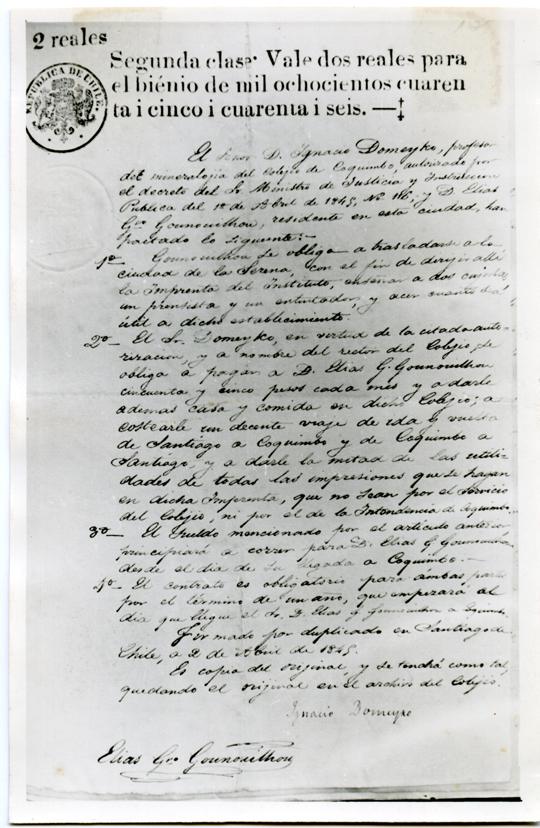 2 reales
Segunda clase. Vale dos reales para
el biénio de mil ochocientos cuaren
ta i cinco i cuarenta i seis. —
REPUBLICA DE CHILE
El Señor D. Ignacio Domeyko, profesor
de mineralojia del Colejio de Coquimbo, autorizado por
el decreto del Sr Ministro de Justicia y Instruccion
Publica del 1º de Abril de 1845, Nº 116; y D. Elias
Gmo Gounouilhou, residente en esta ciudad, han
pactado lo siguiente:-
1º Gounouilhou se obliga a trasladarse a la
ciudad de la Serena, con el fin de dirijir allá
la Imprenta del Instituto, enseñar a dos cajistas,
un prensista y un entintador, y acer cuanto sea
útil a dicho establecimiento.
2º El Sr. Domeyko, en virtud de la citada auto-
rizacion, y a nombre del rector del Colejio, se
obliga a pagar a D. Elias G. Gounouilhou
cincuenta y cinco pesos cada mes y a darle
ademas casa y comida en dicho Colejio; a
costearle un decente viaje de ida y vuelta
de Santiago a Coquimbo y de Coquimbo a
Santiago, y a darle la mitad de las utili-
dades de todas las impresiones que se hagan
en dicha Imprenta, que no sean por el servicio
del Colejio, ni por el de la Intendencia de Coquimbo.
3º El sueldo mencionado por el articulo anterior
principiará a correr para D. Elias G Gounouilhou
desde el dia de su llegada a Coquimbo.-
4º El contrato es obligatorio para ambas partes
por el término de un año, que empezará al
dia que llegue el Sr. D. Elias G Gounouilhou a Coquimbo.
Firmado por duplicado en Santiago de
Chile, a 2 de Abril de 1845.
Es copia del orijinal, y se tendrá como tal,
quedando el orijinal en el archivo del Colejio.
Ignacio Domeyko
Elias Gmo Gounouilhou